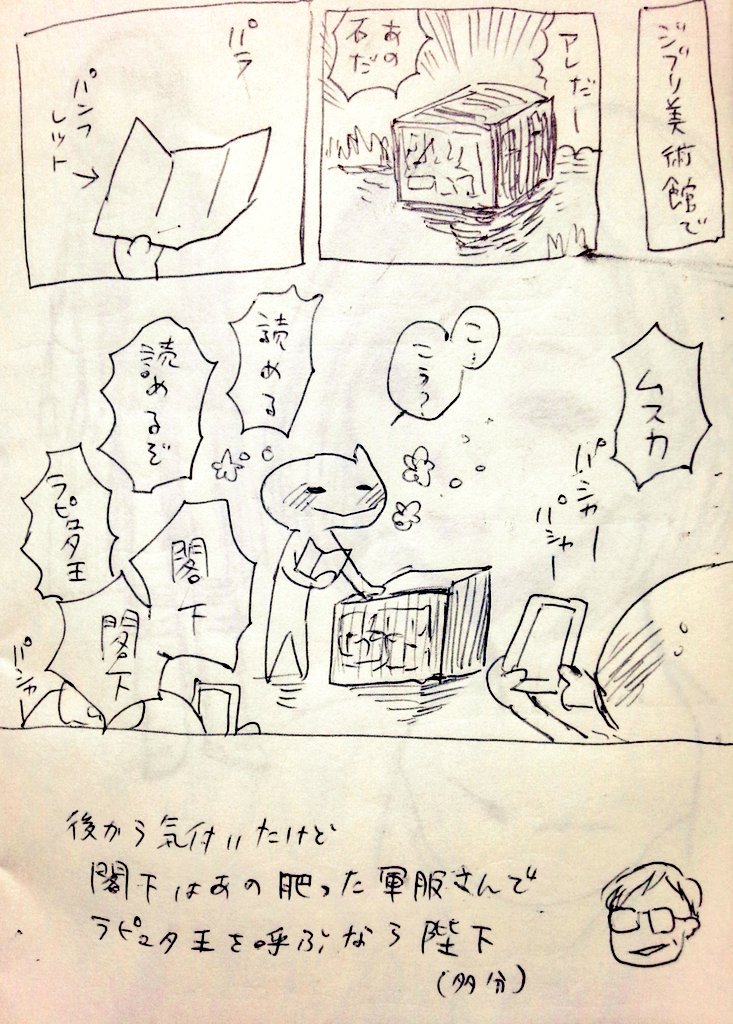 ジブリ美術館で
アレだー
あの
石だ
パラ
パンフ
レット
ムスカ
パシャー
パシャー
こ…
こう?
読める
読めるぞ
ラピュタ王
閣下
閣下
パシャ
後から気付いたけど
閣下はあの肥った軍服さんで
ラピュタ王を呼ぶなら陛下
(多分)